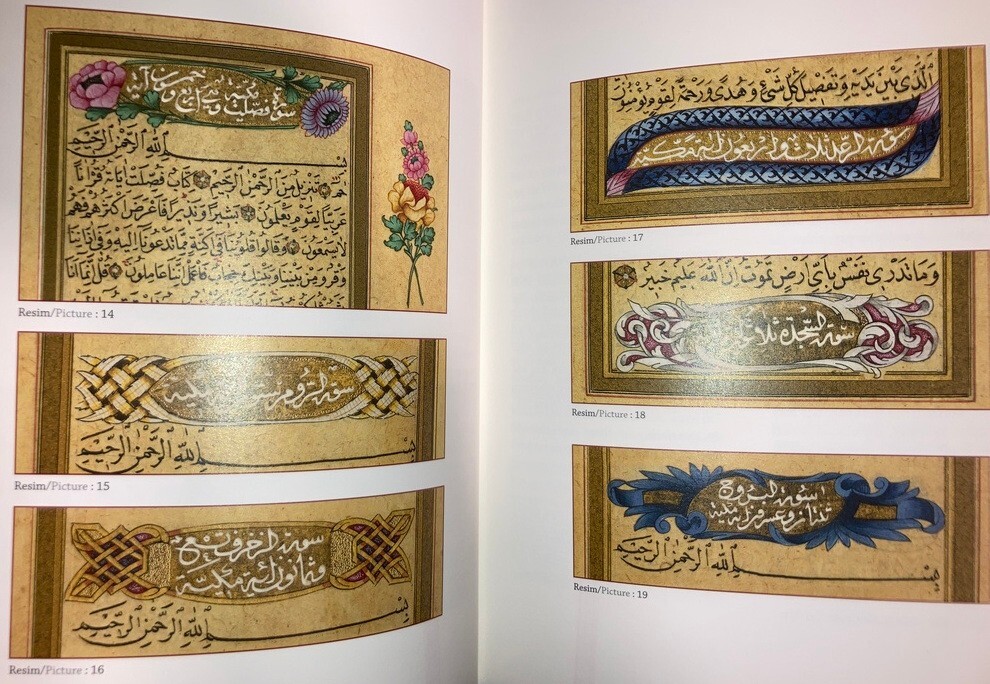 سورة فصلت مكية وهي اربع وخمسون آية
بِسْمِ اللّٰهِ الرَّحْمٰنِ الرَّحِيمِ
حم تَنْزِيلٌ مِنَ الرَّحْمٰنِ الرَّحِيمِ كِتَابٌ فُصِّلَتْ اٰيَاتُهُ قُرْاٰنًا
عَرَبِيًّا لِقَوْمٍ يَعْلَمُونَ بَشِيرًا وَنَذِيرًا فَاَعْرَضَ اَكْثَرُهُمْ فَهُمْ
لَا يَسْمَعُونَ وَقَالُوا قُلُوبُنَا فِي اَكِنَّةٍ مِمَّا تَدْعُونَا اِلَيْهِ وَفِي اٰذَانِنَا
وَقْرٌ وَمِنْ بَيْنِنَا وَبَيْنِكَ حِجَابٌ فَاعْمَلْ اِنَّنَا عَامِلُونَ قُلْ اِنَّمَا اَنَا
Resim/Picture : 14
سورة الروم ستون مكية
بِسْمِ اللّٰهِ الرَّحْمٰنِ الرَّحِيمِ
Resim/Picture : 15
سورة الزخرف تسع
وثمانون آية مكية
بِسْمِ اللّٰهِ الرَّحْمٰنِ الرَّحِيمِ
Resim/Picture : 16
الَّذِي بَيْنَ يَدَيْهِ وَتَفْصِيلَ كُلِّ شَيْءٍ وَهُدًى وَرَحْمَةً لِقَوْمٍ يُؤْمِنُونَ
سورة الرعد ثلاث واربعون آية مكية
Resim/Picture : 17
وَمَا تَدْرِي نَفْسٌ بِاَيِّ اَرْضٍ تَمُوتُ اِنَّ اللّٰهَ عَلِيمٌ خَبِيرٌ
سورة السجدة ثلاثون
Resim/Picture : 18
سورة البروج
ثنتان وعشرون آية مكية
بِسْمِ اللّٰهِ الرَّحْمٰنِ الرَّحِيمِ
Resim/Picture : 19